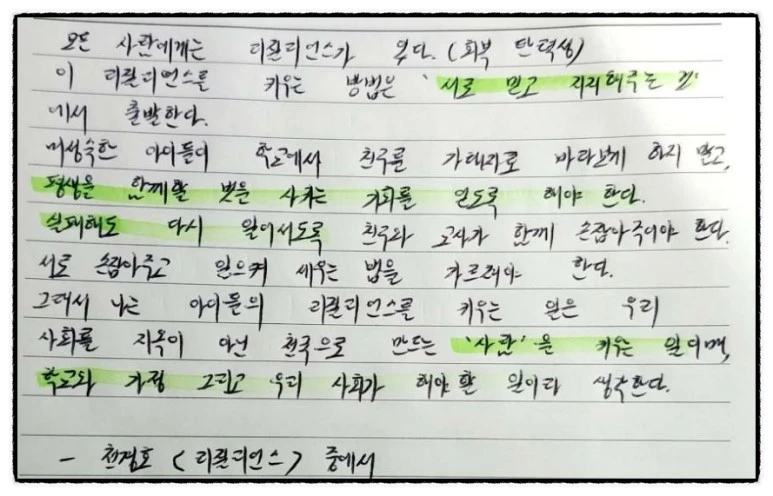 모든 사람에게는 리질리언스가 있다. (회복 탄력성)
이 리질리언스를 키우는 방법은 '서로 믿고 지지해주는 것'
에서 출발한다.
미성숙한 아이들이 학교에서 친구를 가해자로 바라보게 하지 말고,
평생을 함께할 벗을 사귀는 기회를 얻도록 해야 한다.
실패해도 다시 일어서도록 친구와 교사가 함께 손잡아주어야 한다.
서로 손잡아주고 일으켜 세우는 법을 가르쳐야 한다.
그래서 나는 아이들의 리질리언스를 키우는 일은 우리
사회를 지옥이 아닌 천국으로 만드는 '사람'을 키우는 일이며,
학교와 가정 그리고 우리 사회가 해야 할 일이라 생각한다.
- 천경호 <리질리언스> 중에서